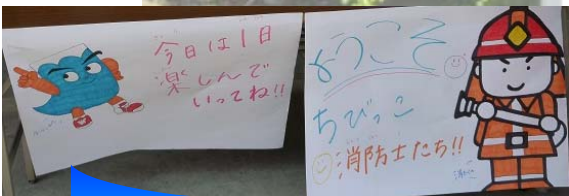 今日は1日
楽しんで
いってね!!
ようこそ
ちびっこ
消防士たち!!